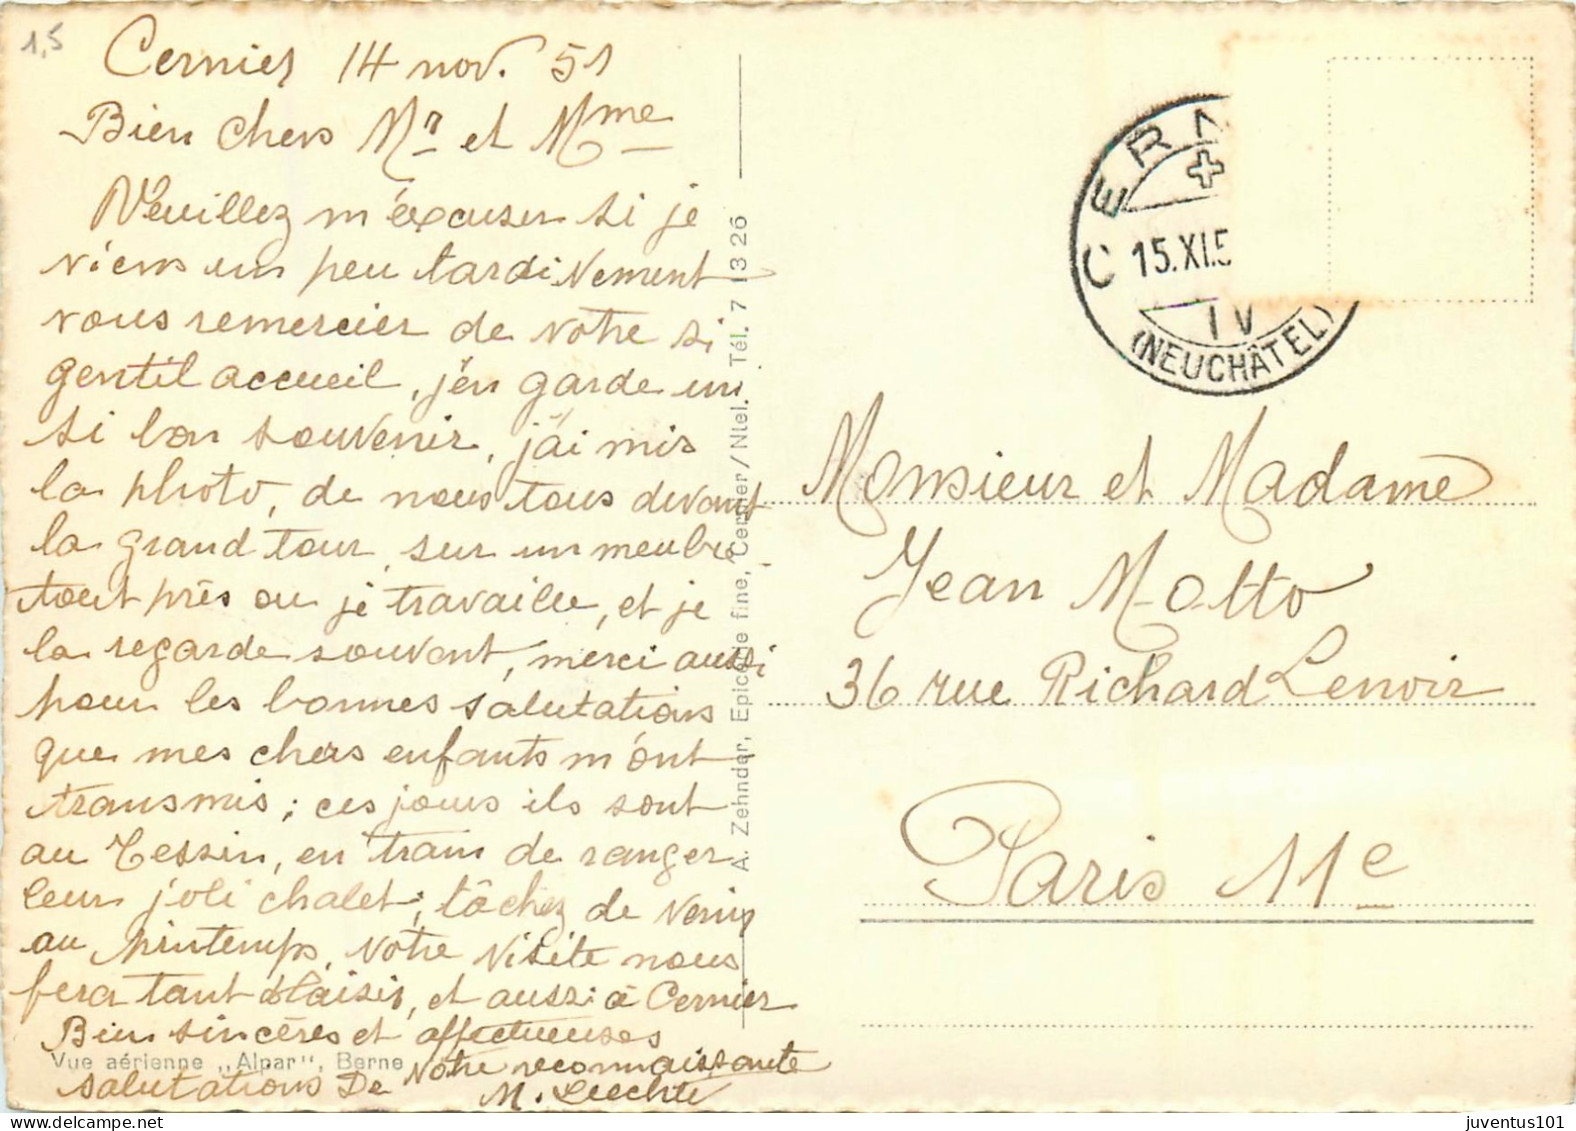 1,5
Cernier 14 nov. 51
Bien chers Mr et Mme
Veuillez m'éxcuser si je
viens un peu tardivement
vous remercier de votre si
gentil accueil, j'én garde un
si bon souvenir, j'ai mis
la photo, de nous tous devant
la grand tour, sur un meuble
tout près ou je travaille, et je
la regarde souvent, merci aussi
pour les bonnes salutations
que mes chers enfants m'ont
transmis; ces jours ils sont
au Tessin, en train de ranger
leur joli chalet; tâchez de venir
au printemps, votre visite nous
fera tant plaisir, et aussi à Cernier
Bien sincères et affectueuses
salutations De votre reconnaissante
M.
Vue aérienne „Alpar", Berne
A. Zehnder, Epicerie fine, Cernier/Ntel. Tél. 7 13 26
CERN
15.XI.5
IV
(NEUCHÂTEL)
Monsieur et Madame
Jean Motto
36 rue Richard Lenoir
Paris 11e
juventus101